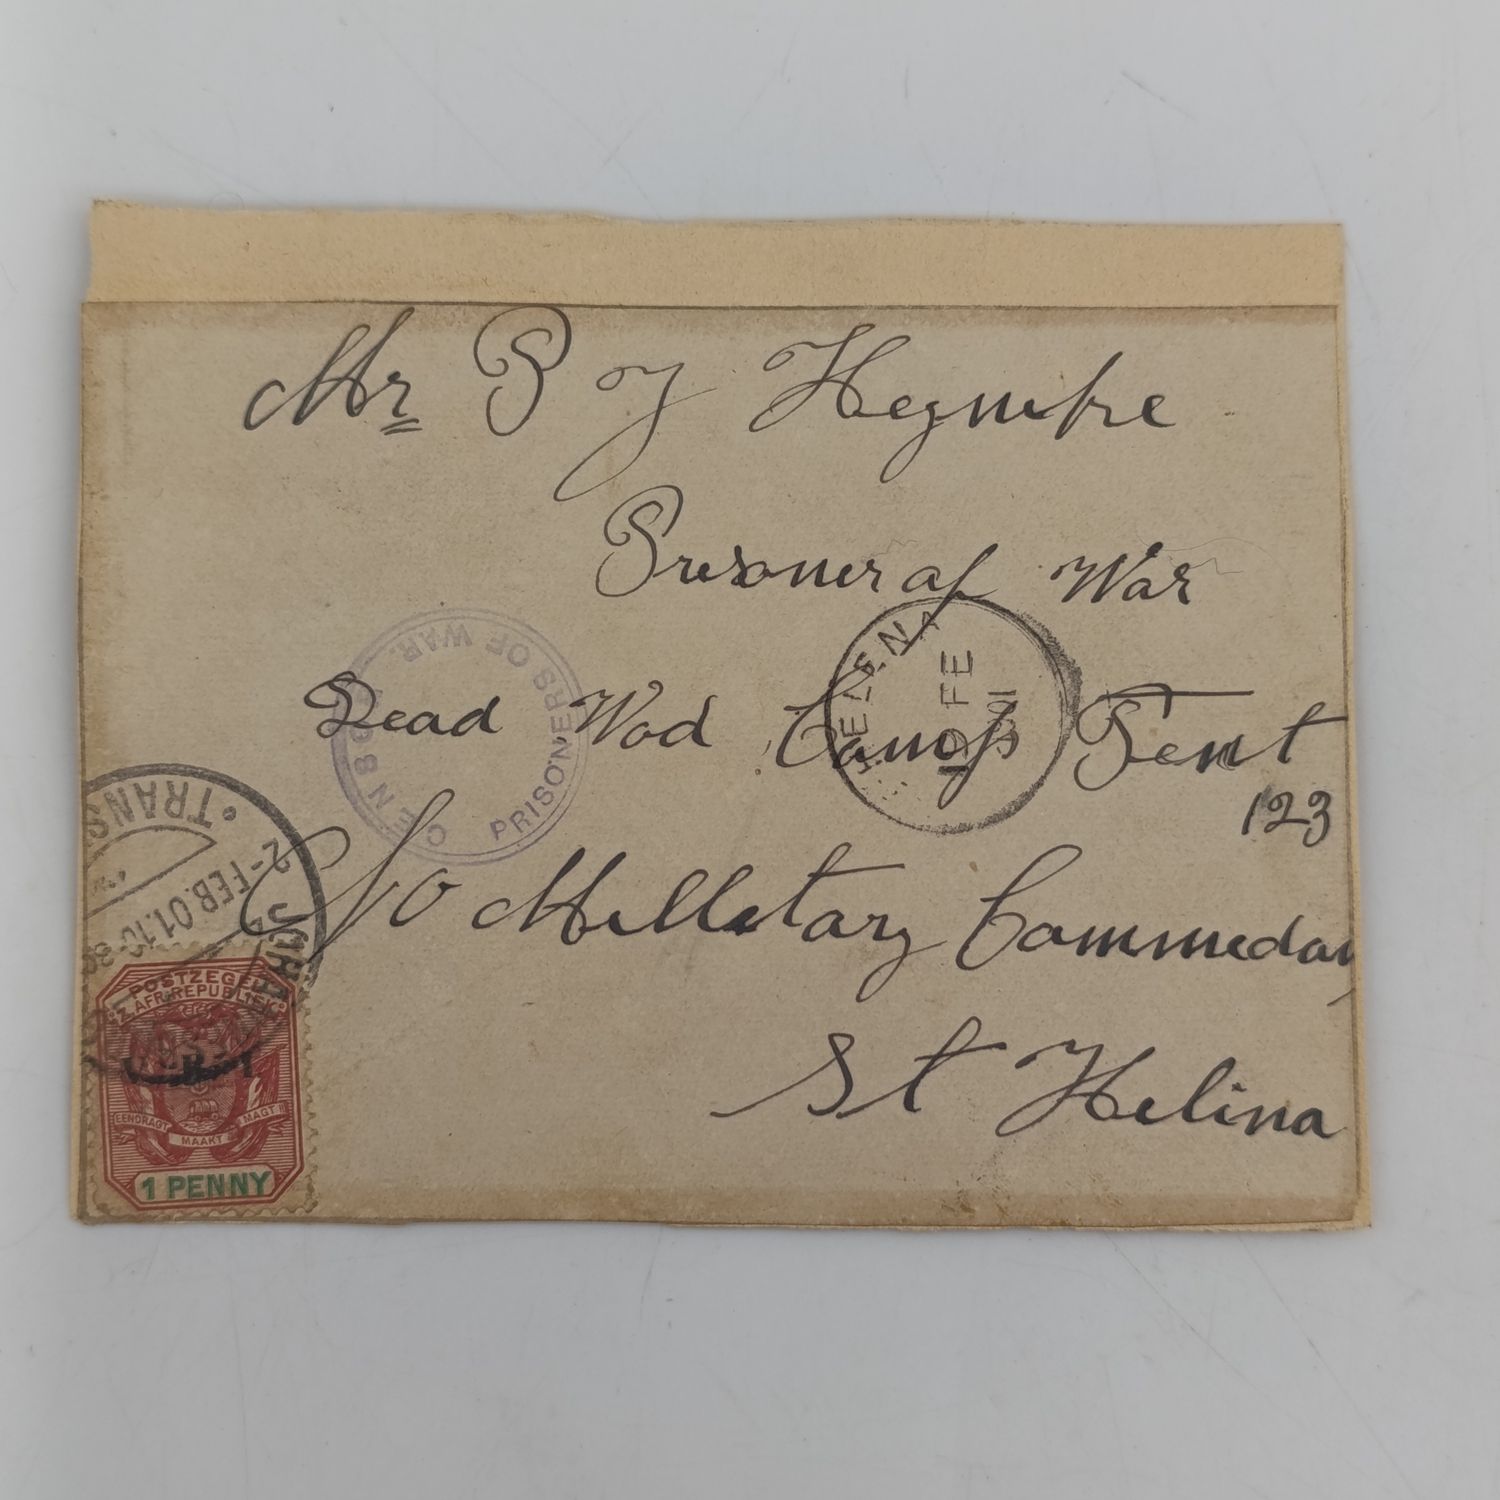 Mr P J Heymbre
Prisoner of War
Dead Wod Camp Tent
123
C/O Milletary Commedan
St Helina
CENSOR
PRISONERS OF WAR.
HELENA
FE
01
TRANS
2-FEB.01.10-30
JOH
POSTZEGEL
Z. AFR. REPUBLIEK
V.R.I.
EENDRAGT MAAKT MAGT
1 PENNY